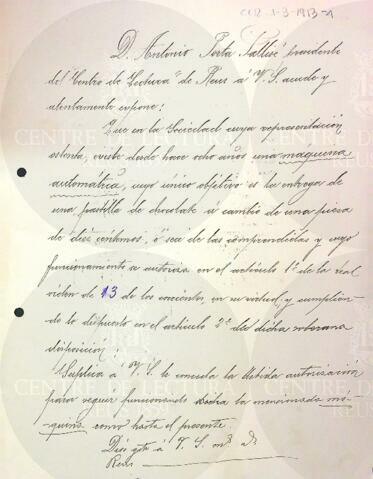 CCR 1-3-1913-1
D. Antonio Porta Pallisé presidente
del "Centro de Lectura" de Reus a V. S. acude y
atentamente expone:
Que en la Sociedad cuya representación
ostenta, existe desde hace ocho años una maquina
automática, cuyo único objetivo es la entrega de
una pastilla de chocolate á cambio de una pieza
de diez centimos, ó sea de las comprendidas y cuyo
funcionamiento se autoriza en el artículo 1º de la real
orden de 13 de los corrientes, en su virtud y cumplien-
do lo dispuesto en el artículo 2º de dicha soberana
disposición;
Suplica á V. S. le conceda la debida autorización
para seguir funcionando dicha la mencionada má-
quina como hasta el presente.
Dios gde á V. S. ms as
Reus
CENTRE DE LECTURA
REUS 1859